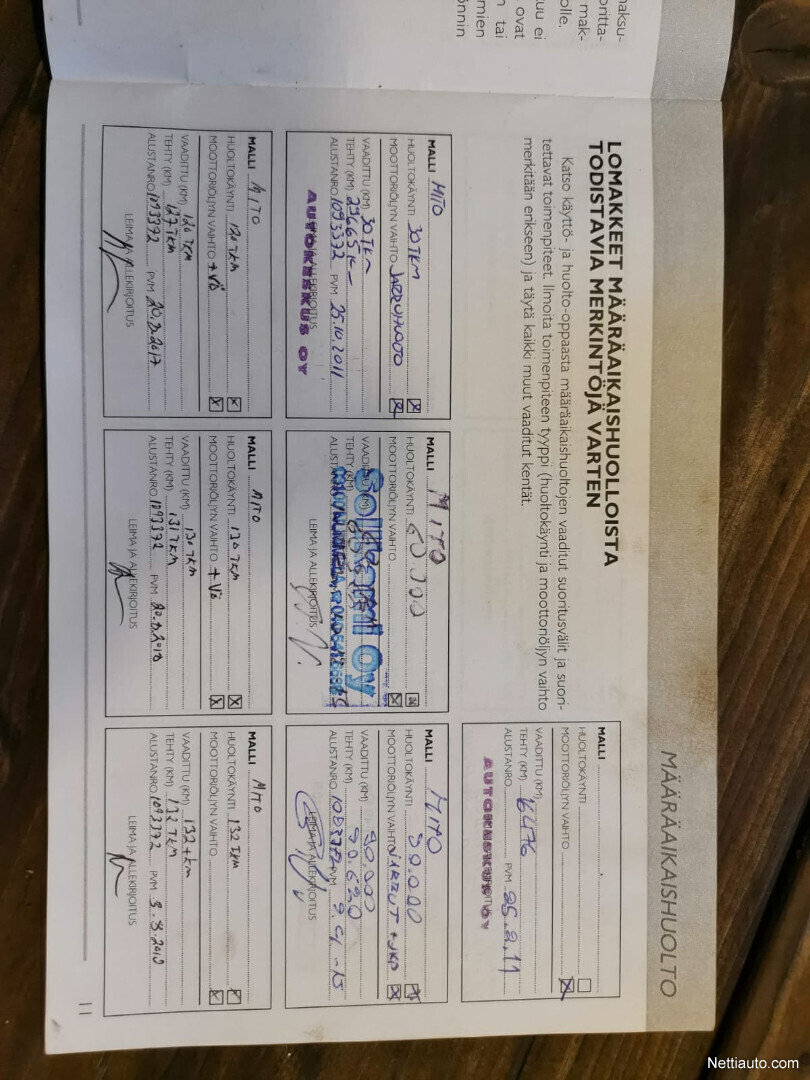 MÄÄRÄAIKAISHUOLTO
LOMAKKEET MÄÄRÄAIKAISHUOLLOISTA
TODISTAVIA MERKINTÖJÄ VARTEN
Katso käyttö- ja huolto-oppaasta määräaikaishuoltojen vaaditut suoritusvälit ja suori-
tettavat toimenpiteet. Ilmoita toimenpiteen tyyppi (huoltokäynti ja moottoriöljyn vaihto
merkitään erikseen) ja täytä kaikki muut vaaditut kentät.
MALLI
HUOLTOKÄYNTI
MOOTTORIÖLJYN VAIHTO
VAADITTU (KM)
TEHTY (KM) 16476
ALUSTANRO PVM 25.2.11
AUTOKESKUS OY
MALLI MITO
HUOLTOKÄYNTI 30TKM
MOOTTORIÖLJYN VAIHTO JARRUHUOLTO
VAADITTU (KM) 30TKM
TEHTY (KM) 29665K
ALUSTANRO 1093372 PVM 25.10.2011
LEIMA JA ALLEKIRJOITUS
AUTOKESKUS OY
MALLI MITO
HUOLTOKÄYNTI 60.000
MOOTTORIÖLJYN VAIHTO
VAADITTU (KM)
TEHTY (KM)
ALUSTANRO
LEIMA JA ALLEKIRJOITUS
MALLI MITO
HUOLTOKÄYNTI 90.000
MOOTTORIÖLJYN VAIHTO JARRUT
VAADITTU (KM) 90.000
TEHTY (KM) 90.620
ALUSTANRO 1093372 PVM 9.4
LEIMA JA ALLEKIRJOITUS
MALLI MITO
HUOLTOKÄYNTI 120 TKM
MOOTTORIÖLJYN VAIHTO + VÖ
VAADITTU (KM) 120 TKM
TEHTY (KM) 127 TKM
ALUSTANRO 1093372 PVM 20.2.2017
LEIMA JA ALLEKIRJOITUS
MALLI MITO
HUOLTOKÄYNTI 130 TKM
MOOTTORIÖLJYN VAIHTO + VÖ
VAADITTU (KM) 130 TKM
TEHTY (KM) 131 TKM
ALUSTANRO 1093372 PVM
LEIMA JA ALLEKIRJOITUS
MALLI MITO
HUOLTOKÄYNTI 132 TKM
MOOTTORIÖLJYN VAIHTO
VAADITTU (KM) 132 TKM
TEHTY (KM) 132 TKM
ALUSTANRO 1093372 PVM
LEIMA JA ALLEKIRJOITUS
11
Nettiauto.com